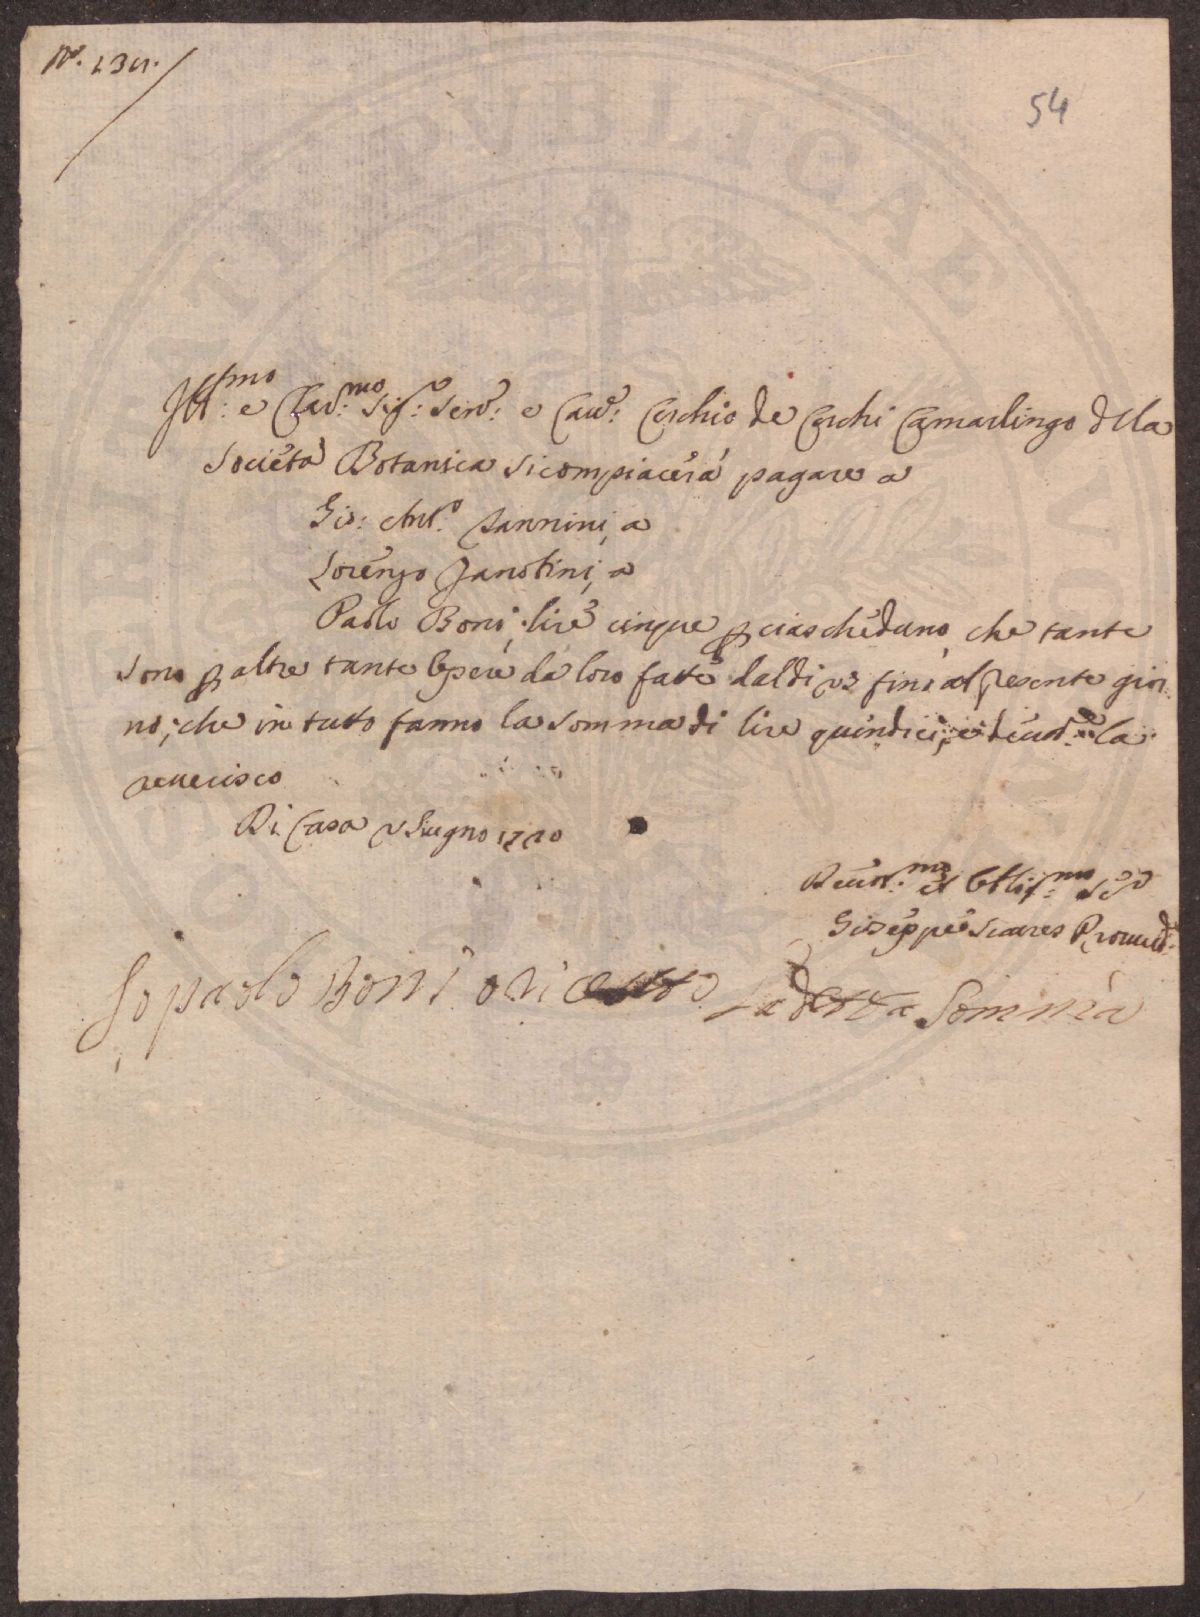 N.o 131.
54
Ill:mo e Clar:mo Sig:r Sen:r e Cav:r Cerchio de Cerchi Camarlingo della
Società Botanica si compiacerà pagare a
Gio: Ant.o Nannini, a
Lorenzo Zanobini, a
Paolo Boni, lire cinque p ciascheduno, che tante
sono p altre tante opere da loro fatte dal di fino al presente gior
no; che in tutto fanno la somma di lire quindici, e la
reverisco
Di Casa Giugno 1720
Devot:mo et Obblig:mo Ser
Giuseppe Suares Proved:
Io paolo Boni o riceuto la detta Somma